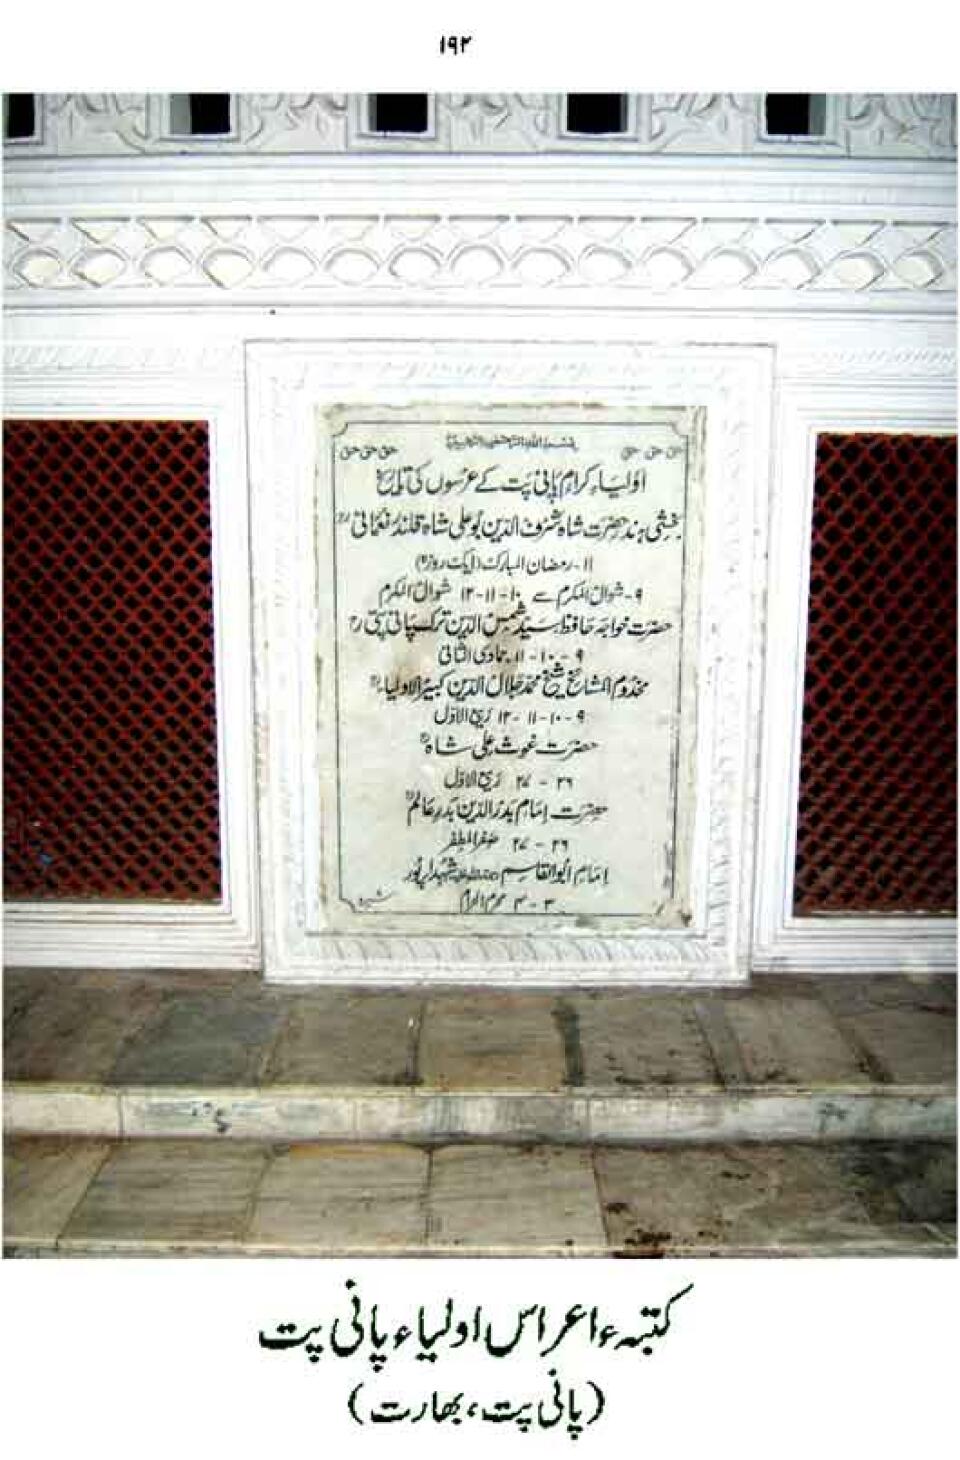 ۱۹۲
بسم اللہ الرحمن الرحیم
حق حق حق
حق حق حق
اولیاء کرام پانی پت کے عرسوں کی تاریخ
بخشی ہند حضرت شاہ شرف الدین بو علی شاہ قلندر نعمانیؒ
۱۱-رمضان المبارک (ایک روزہ)
۹-شوال المکرم سے ۱۰-۱۱-۱۲ شوال المکرم
حضرت خواجہ حافظ سید شمس الدین ترک پانی پتیؒ
۹-۱۰-۱۱ جمادی الثانی
مخدوم المشائخ شیخ محمد جلال الدین کبیر الاولیاءؒ
۹-۱۰-۱۱-۱۲ ربیع الاول
حضرت غوث علی شاہؒ
۲۶-۲۷ ربیع الاول
حضرت امام بدر الدین بدر عالمؒ
۲۶-۲۷ صفر المظفر
امام ابوالقاسم شہداپور
۳-۴ محرم الحرام
کتبہء اعراس اولیاء پانی پت
(پانی پت، بھارت)